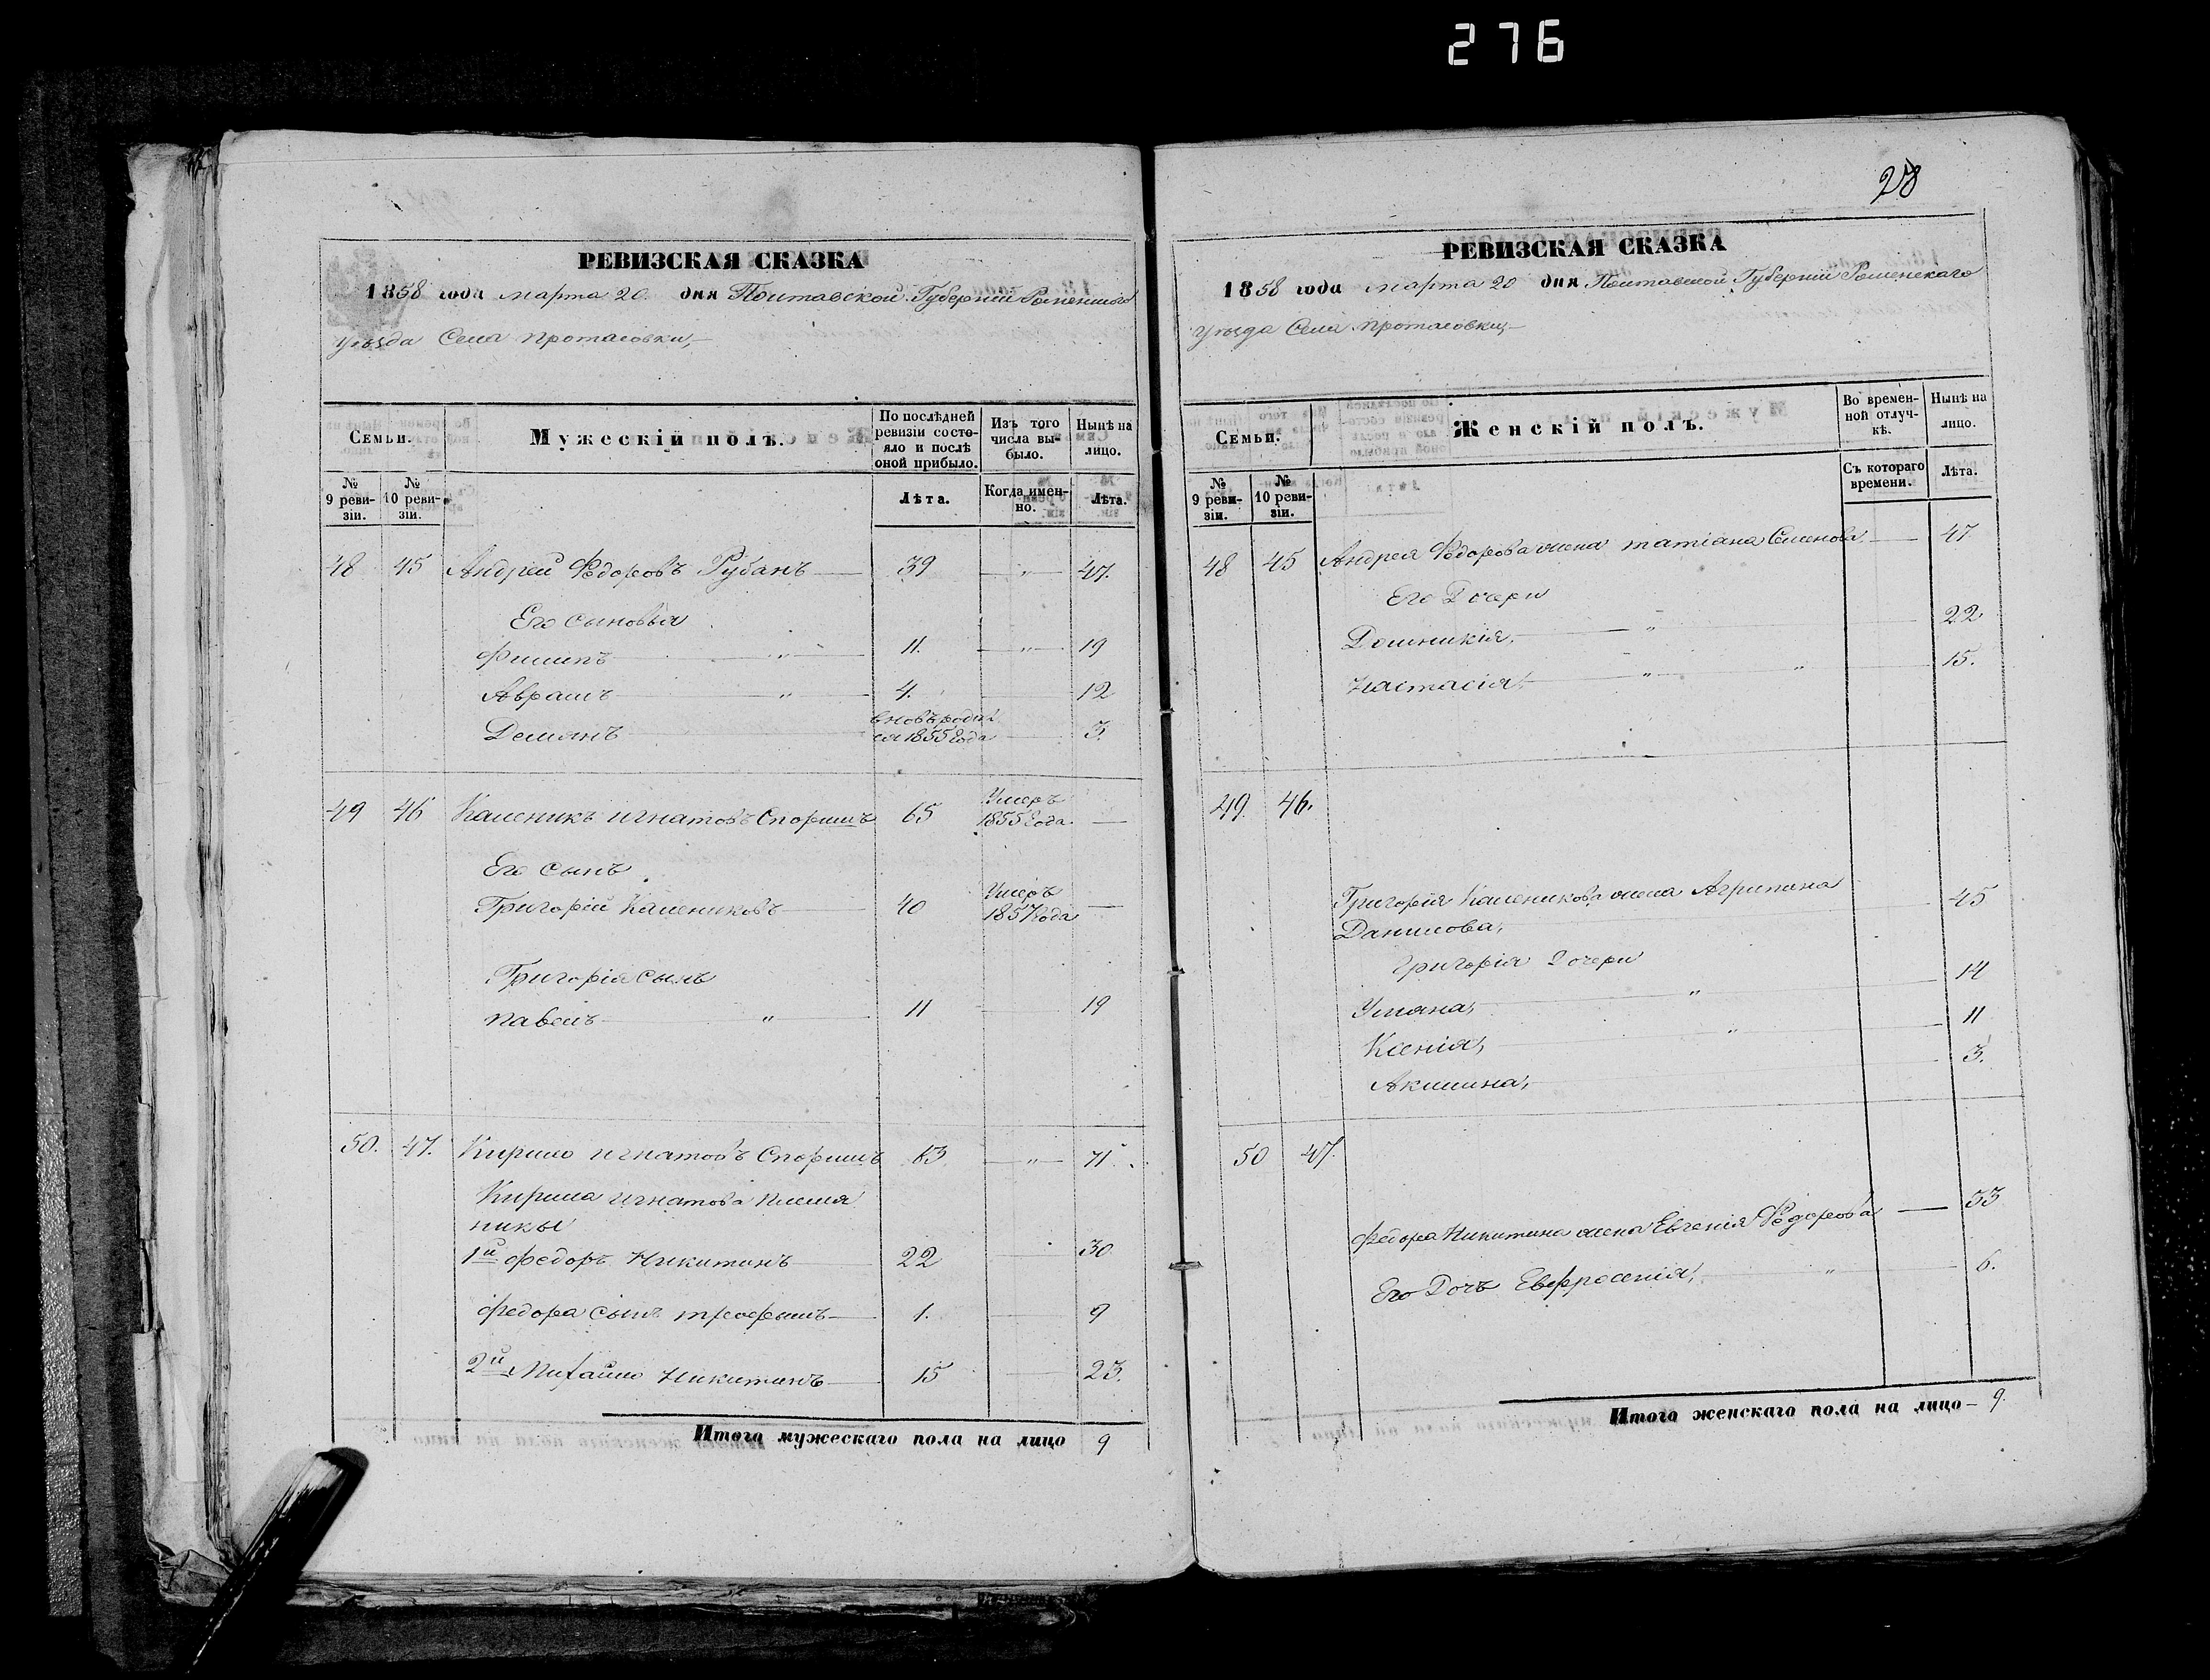 276
РЕВИЗСКАЯ СКАЗКА
1858 года марта 20 дня Полтавской Губерніи Роменского
уѣзда Села Протасовки,
Семьи.
Мужескій полъ.
По послѣдней ревизіи состояло и послѣ оной прибыло.
Изъ того числа выбыло.
Нынѣ на лицо.
№ 9 ревизіи.
№ 10 ревизіи.
Лѣта.
Когда именно.
Лѣта.
48 45 Андрей Федоровъ Рубанъ 39 " 47.
Его сыновья
Филипъ " 11. " 19
Аврамъ " 4. 12
Демянъ вновь родился 1855 года 3.
49 46 Каленикъ игнатовъ Споришъ 65 Умеръ 1855 года —
Его сынъ
Григорій Калениковъ 40 Умеръ 1857 года —
Григорія сынъ
павелъ " 11 19
50. 47. Кирило игнатовъ Споришъ 63 " 71.
Кирила игнатова племя
ники
1й федоръ Никитинъ 22 30
федора сынъ трофимъ 1. 9
2й Михайло Никитинъ 15 23.
Итого мужескаго пола на лицо 9
28
РЕВИЗСКАЯ СКАЗКА
1858 года марта 20 дня Полтавской Губерніи Роменскаго
уѣзда Села Протасовки,
Семьи.
Женскій полъ.
Во временной отлучкѣ.
Нынѣ на лицо.
№ 9 ревизіи.
№ 10 ревизіи.
Съ котораго времени.
Лѣта.
48 45 Андрея Федорова жена татіана Семенова 47
Его Дочери
Домникія, " 22
Настасія, " " 15.
49. 46.
Григорія Каленикова жена Агрипина 45
Данилова,
Григорія Дочери
Уляна, " 14
Ксенія, " 11
Акилина, 3.
50 47.
федора Никитина жена Евгенія Федорова — 33
Его Дочь Евфросенія, " 6.
Итого женскаго пола на лицо — 9.